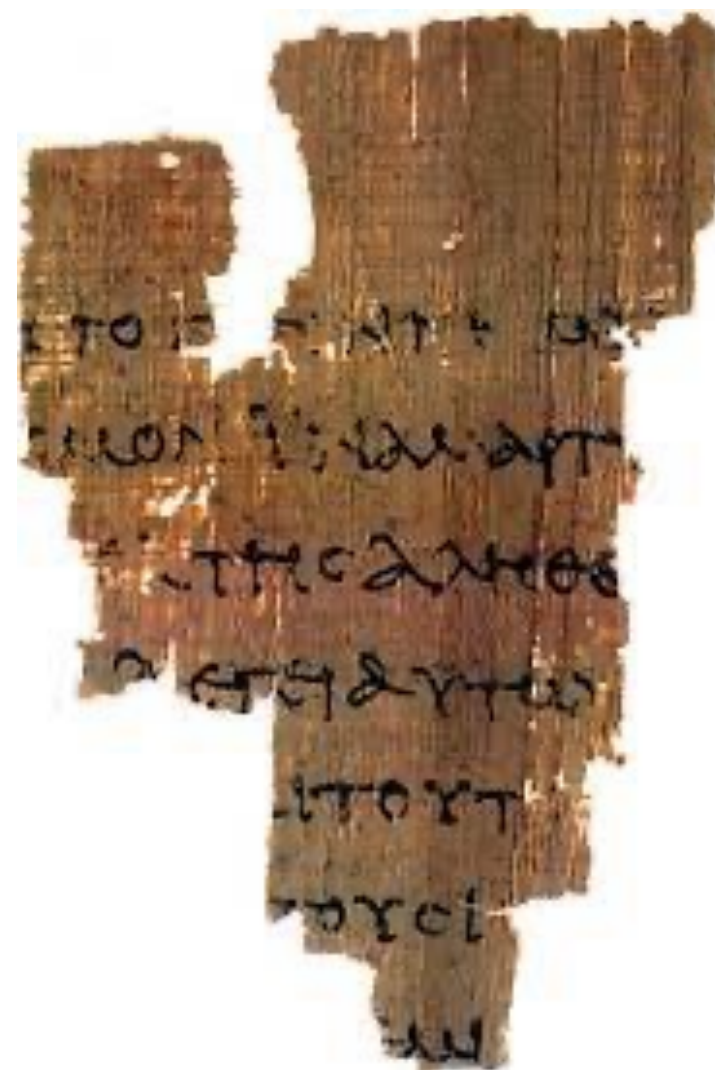 ΤΟ Γ ΝΗΜΑΙ
ϹΜΟΝ ΙΝΑ ΜΑΡΤΥ
ΤΗϹΑΛΗΘΕ
ΛΕΓΕΙΑΥΤΩ
ΙΤΟΥΤ
ΤΟΥϹΙ
ΑΝ